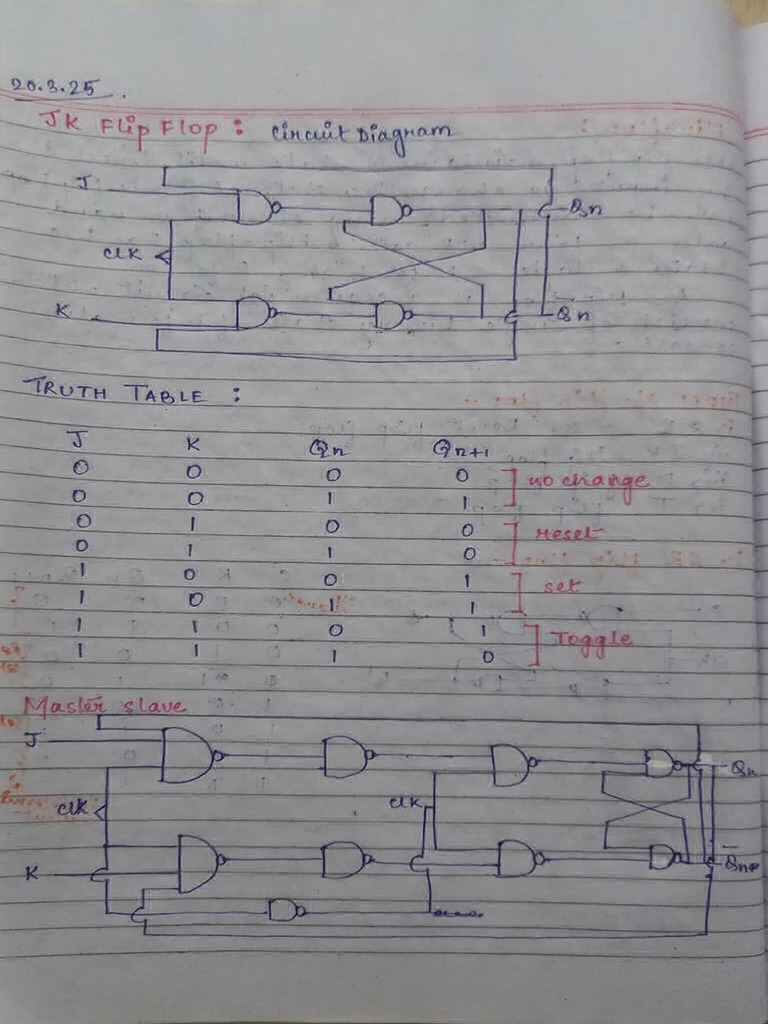 20.3.25
JK Flip Flop : Circuit Diagram
J
Qn
clk
K
Q̅n
TRUTH TABLE :
J K Qn Qn+1
0 0 0 0 no change
0 0 1 1
0 1 0 0 reset
0 1 1 0
1 0 0 1 set
1 0 1 1
1 1 0 1 Toggle
1 1 1 0
Master slave
J
Qn
clk clk
K